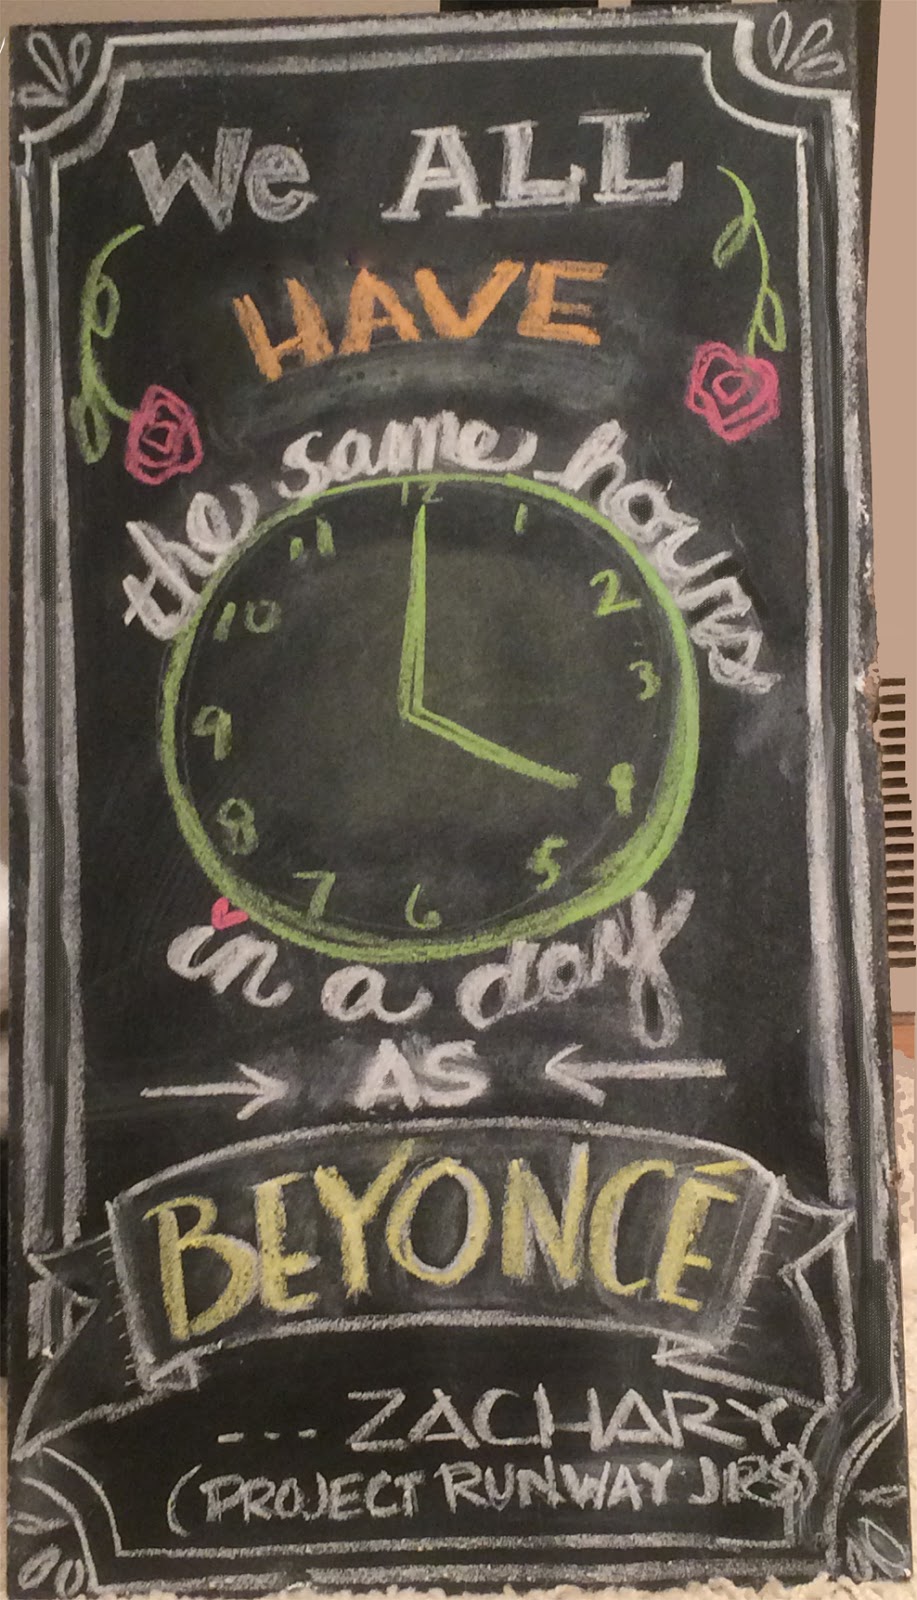 We ALL
HAVE
the same hours
12
1
2
3
4
5
6
7
8
9
10
11
in a day
AS
BEYONCÉ
--- ZACHARY
(PROJECT RUNWAY JRS)